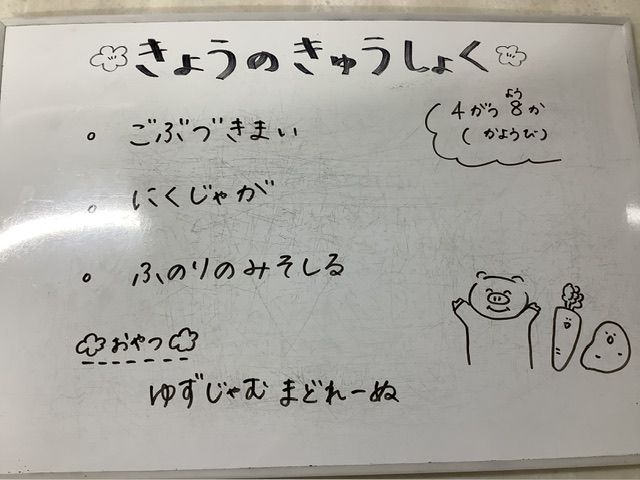 きょうのきゅうしょく
4がつ 8か
よう
(かようび)
。ごぶづきまい
。にくじゃが
。ふのりのみそしる
おやつ
ゆずじゃむ まどれーぬ